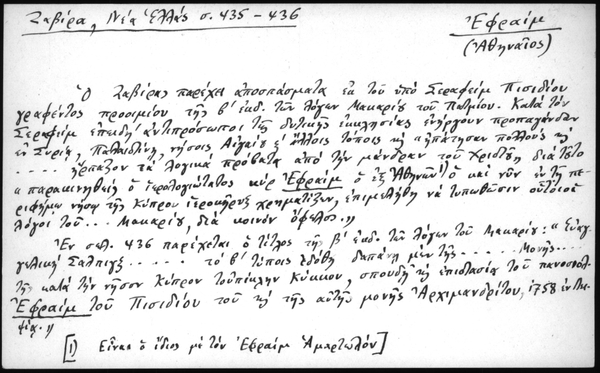 Ζαβίρα, Νέα Ἑλλάς σ. 435 - 436
Ἐφραίμ
(Ἀθηναῖος)
Ὁ Ζαβίρας παρέχει ἀποσπάσματα ἐκ τοῦ ὑπό Σεραφείμ Πισιδίου
γραφέντος προοιμίου τῆς β' ἐκδ. τῶν λόγων Μακαρίου τοῦ Πατμίου. Κατά τόν
Σεραφείμ ἐπειδή "ἀντιπρόσωποι τῆς δυτικῆς ἐκκλησίας ἐνήργουν προπαγάνδαν
ἐν Συρίᾳ, Παλαιστίνῃ, νήσοις Αἰγαίου κ' ἄλλοις τόποις κ' "ἠπάτησαν πολλούς κ'
.... ἥρπαζον τά λογικά πρόβατα ἀπό τήν μάνδραν τοῦ Χριστοῦ, διά τοῦτο
"παρακινηθείς ὁ ἐλλογιμώτατος κύρ Ἐφραίμ ὁ ἐξ Ἀθηνῶν (1) ὁ καί νῦν ἐν τῇ πε-
ριφήμῳ νήσῳ τῆς Κύπρου ἱεροκῆρυξ χρηματίζων, ἐπεμελήθη νά τυπωθῶσιν οὗτοι οἱ
λόγοι τοῦ... Μακαρίου, διά κοινόν ὄφελος."
Ἐν σελ. 436 παρέχεται ὁ τίτλος τῆς β' ἐκδ. τῶν λόγων τοῦ Μακαρίου: "Εὐαγ-
γελική Σάλπιγξ ..... τό β' τύποις ἐδόθη δαπάνῃ μέν τῆς ..... Μονῆς....
τῆς κατά τήν νῆσον Κύπρον τοὐπίκλην Κύκκου, σπουδῇ κ' ἐπιστασίᾳ τοῦ πανοσιολ.
Ἐφραίμ τοῦ Πισιδίου τοῦ κ' τῆς αὐτῆς μονῆς Ἀρχιμανδρίτου, 1758 ἐν
[1) Εἶναι ὁ ἴδιος μέ τόν Ἐφραίμ Ἁμαρτωλόν]